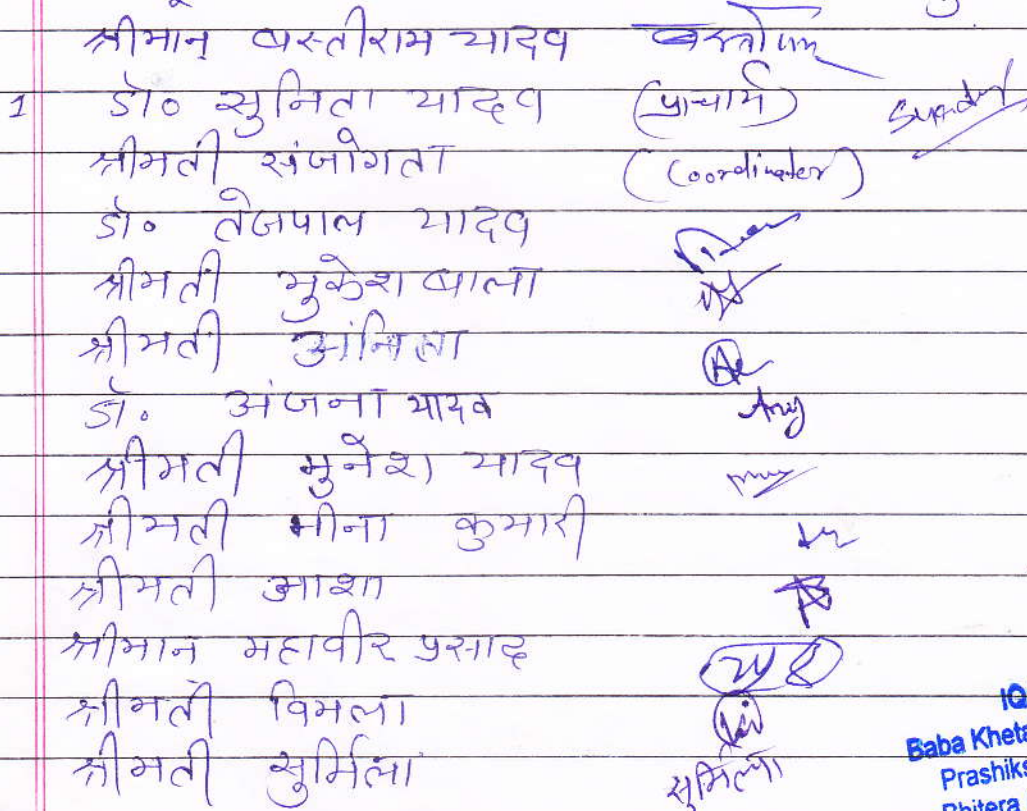 श्रीमान् बस्तीराम यादव
1 डॉ० सुनिता यादव (प्राचार्य)
श्रीमती संजोगता (Coordinater)
डॉ० तेजपाल यादव
श्रीमती मुकेश बाला
श्रीमती अनिता
डॉ. अंजना यादव Anj
श्रीमती मुनेश यादव
श्रीमती मीना कुमारी
श्रीमती आशा
श्रीमान महावीर प्रसाद
श्रीमती विमला
श्रीमती सुर्मिला सुर्मिला
IQ
Baba Kheta
Prashiks
Bhitera